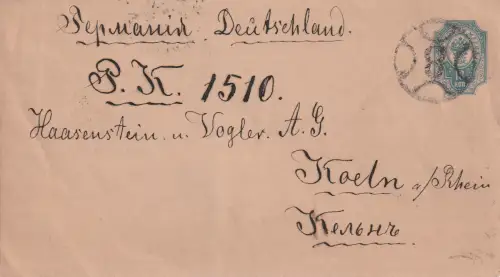 Германія Deutschland.
P. K. 1510.
Haasenstein u. Vogler A. G.
Koeln a/Rhein
Кельнъ